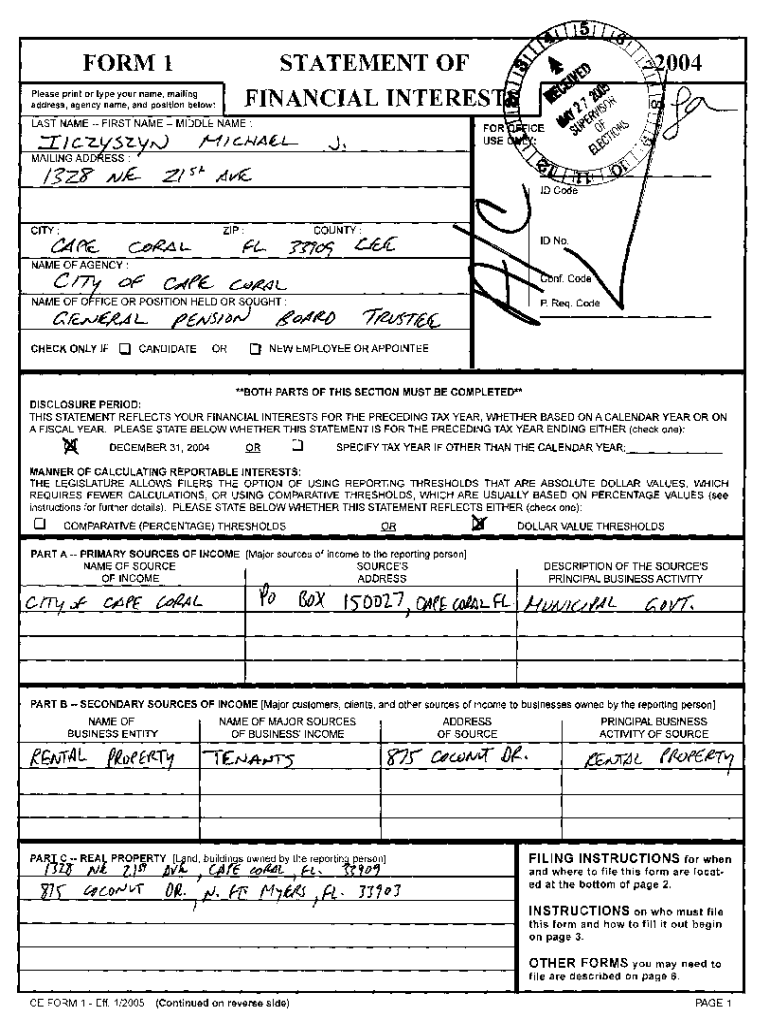 FORM 1 STATEMENT OF 2004
Please print or type your name, mailing
address, agency name, and position below:
FINANCIAL INTERESTS
RECEIVED
MAY 27 2005
SUPERVISOR
OF
ELECTIONS
LAST NAME -- FIRST NAME -- MIDDLE NAME :
ILCZYSZYN MICHAEL J.
MAILING ADDRESS :
1328 NE 21st AVE
CITY : ZIP : COUNTY :
CAPE CORAL FL 33909 LEE
NAME OF AGENCY :
CITY OF CAPE CORAL
NAME OF OFFICE OR POSITION HELD OR SOUGHT :
GENERAL PENSION BOARD TRUSTEE
CHECK ONLY IF CANDIDATE OR NEW EMPLOYEE OR APPOINTEE
FOR OFFICE
USE ONLY:
ID Code
ID No.
Conf. Code
P. Req. Code
**BOTH PARTS OF THIS SECTION MUST BE COMPLETED**
DISCLOSURE PERIOD:
THIS STATEMENT REFLECTS YOUR FINANCIAL INTERESTS FOR THE PRECEDING TAX YEAR, WHETHER BASED ON A CALENDAR YEAR OR ON
A FISCAL YEAR. PLEASE STATE BELOW WHETHER THIS STATEMENT IS FOR THE PRECEDING TAX YEAR ENDING EITHER (check one):
DECEMBER 31, 2004 OR SPECIFY TAX YEAR IF OTHER THAN THE CALENDAR YEAR:
MANNER OF CALCULATING REPORTABLE INTERESTS:
THE LEGISLATURE ALLOWS FILERS THE OPTION OF USING REPORTING THRESHOLDS THAT ARE ABSOLUTE DOLLAR VALUES, WHICH
REQUIRES FEWER CALCULATIONS, OR USING COMPARATIVE THRESHOLDS, WHICH ARE USUALLY BASED ON PERCENTAGE VALUES (see
instructions for further details). PLEASE STATE BELOW WHETHER THIS STATEMENT REFLECTS EITHER (check one):
COMPARATIVE (PERCENTAGE) THRESHOLDS OR DOLLAR VALUE THRESHOLDS
PART A -- PRIMARY SOURCES OF INCOME [Major sources of income to the reporting person]
NAME OF SOURCE SOURCE'S DESCRIPTION OF THE SOURCE'S
OF INCOME ADDRESS PRINCIPAL BUSINESS ACTIVITY
CITY of CAPE CORAL PO BOX 150027, CAPE CORAL FL MUNICIPAL GOVT.
PART B -- SECONDARY SOURCES OF INCOME [Major customers, clients, and other sources of income to businesses owned by the reporting person]
NAME OF NAME OF MAJOR SOURCES ADDRESS PRINCIPAL BUSINESS
BUSINESS ENTITY OF BUSINESS' INCOME OF SOURCE ACTIVITY OF SOURCE
RENTAL PROPERTY TENANTS 875 COCONUT DR. RENTAL PROPERTY
PART C -- REAL PROPERTY [Land, buildings owned by the reporting person]
1328 NE 21st AVE, CAPE CORAL, FL. 33909
875 COCONUT DR., N. FT MYERS, FL. 33903
FILING INSTRUCTIONS for when
and where to file this form are locat-
ed at the bottom of page 2.
INSTRUCTIONS on who must file
this form and how to fill it out begin
on page 3.
OTHER FORMS you may need to
file are described on page 6.
CE FORM 1 - Eff. 1/2005 (Continued on reverse side) PAGE 1